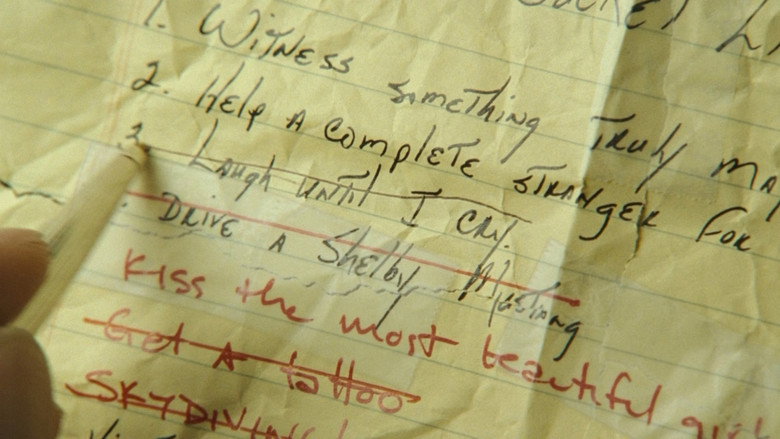 1. Witness something truly
2. Help a complete stranger for
3. Laugh until I cry.
. Drive a Shelby Mustang
Kiss the most beautiful
Get a tattoo
SKYDIVING